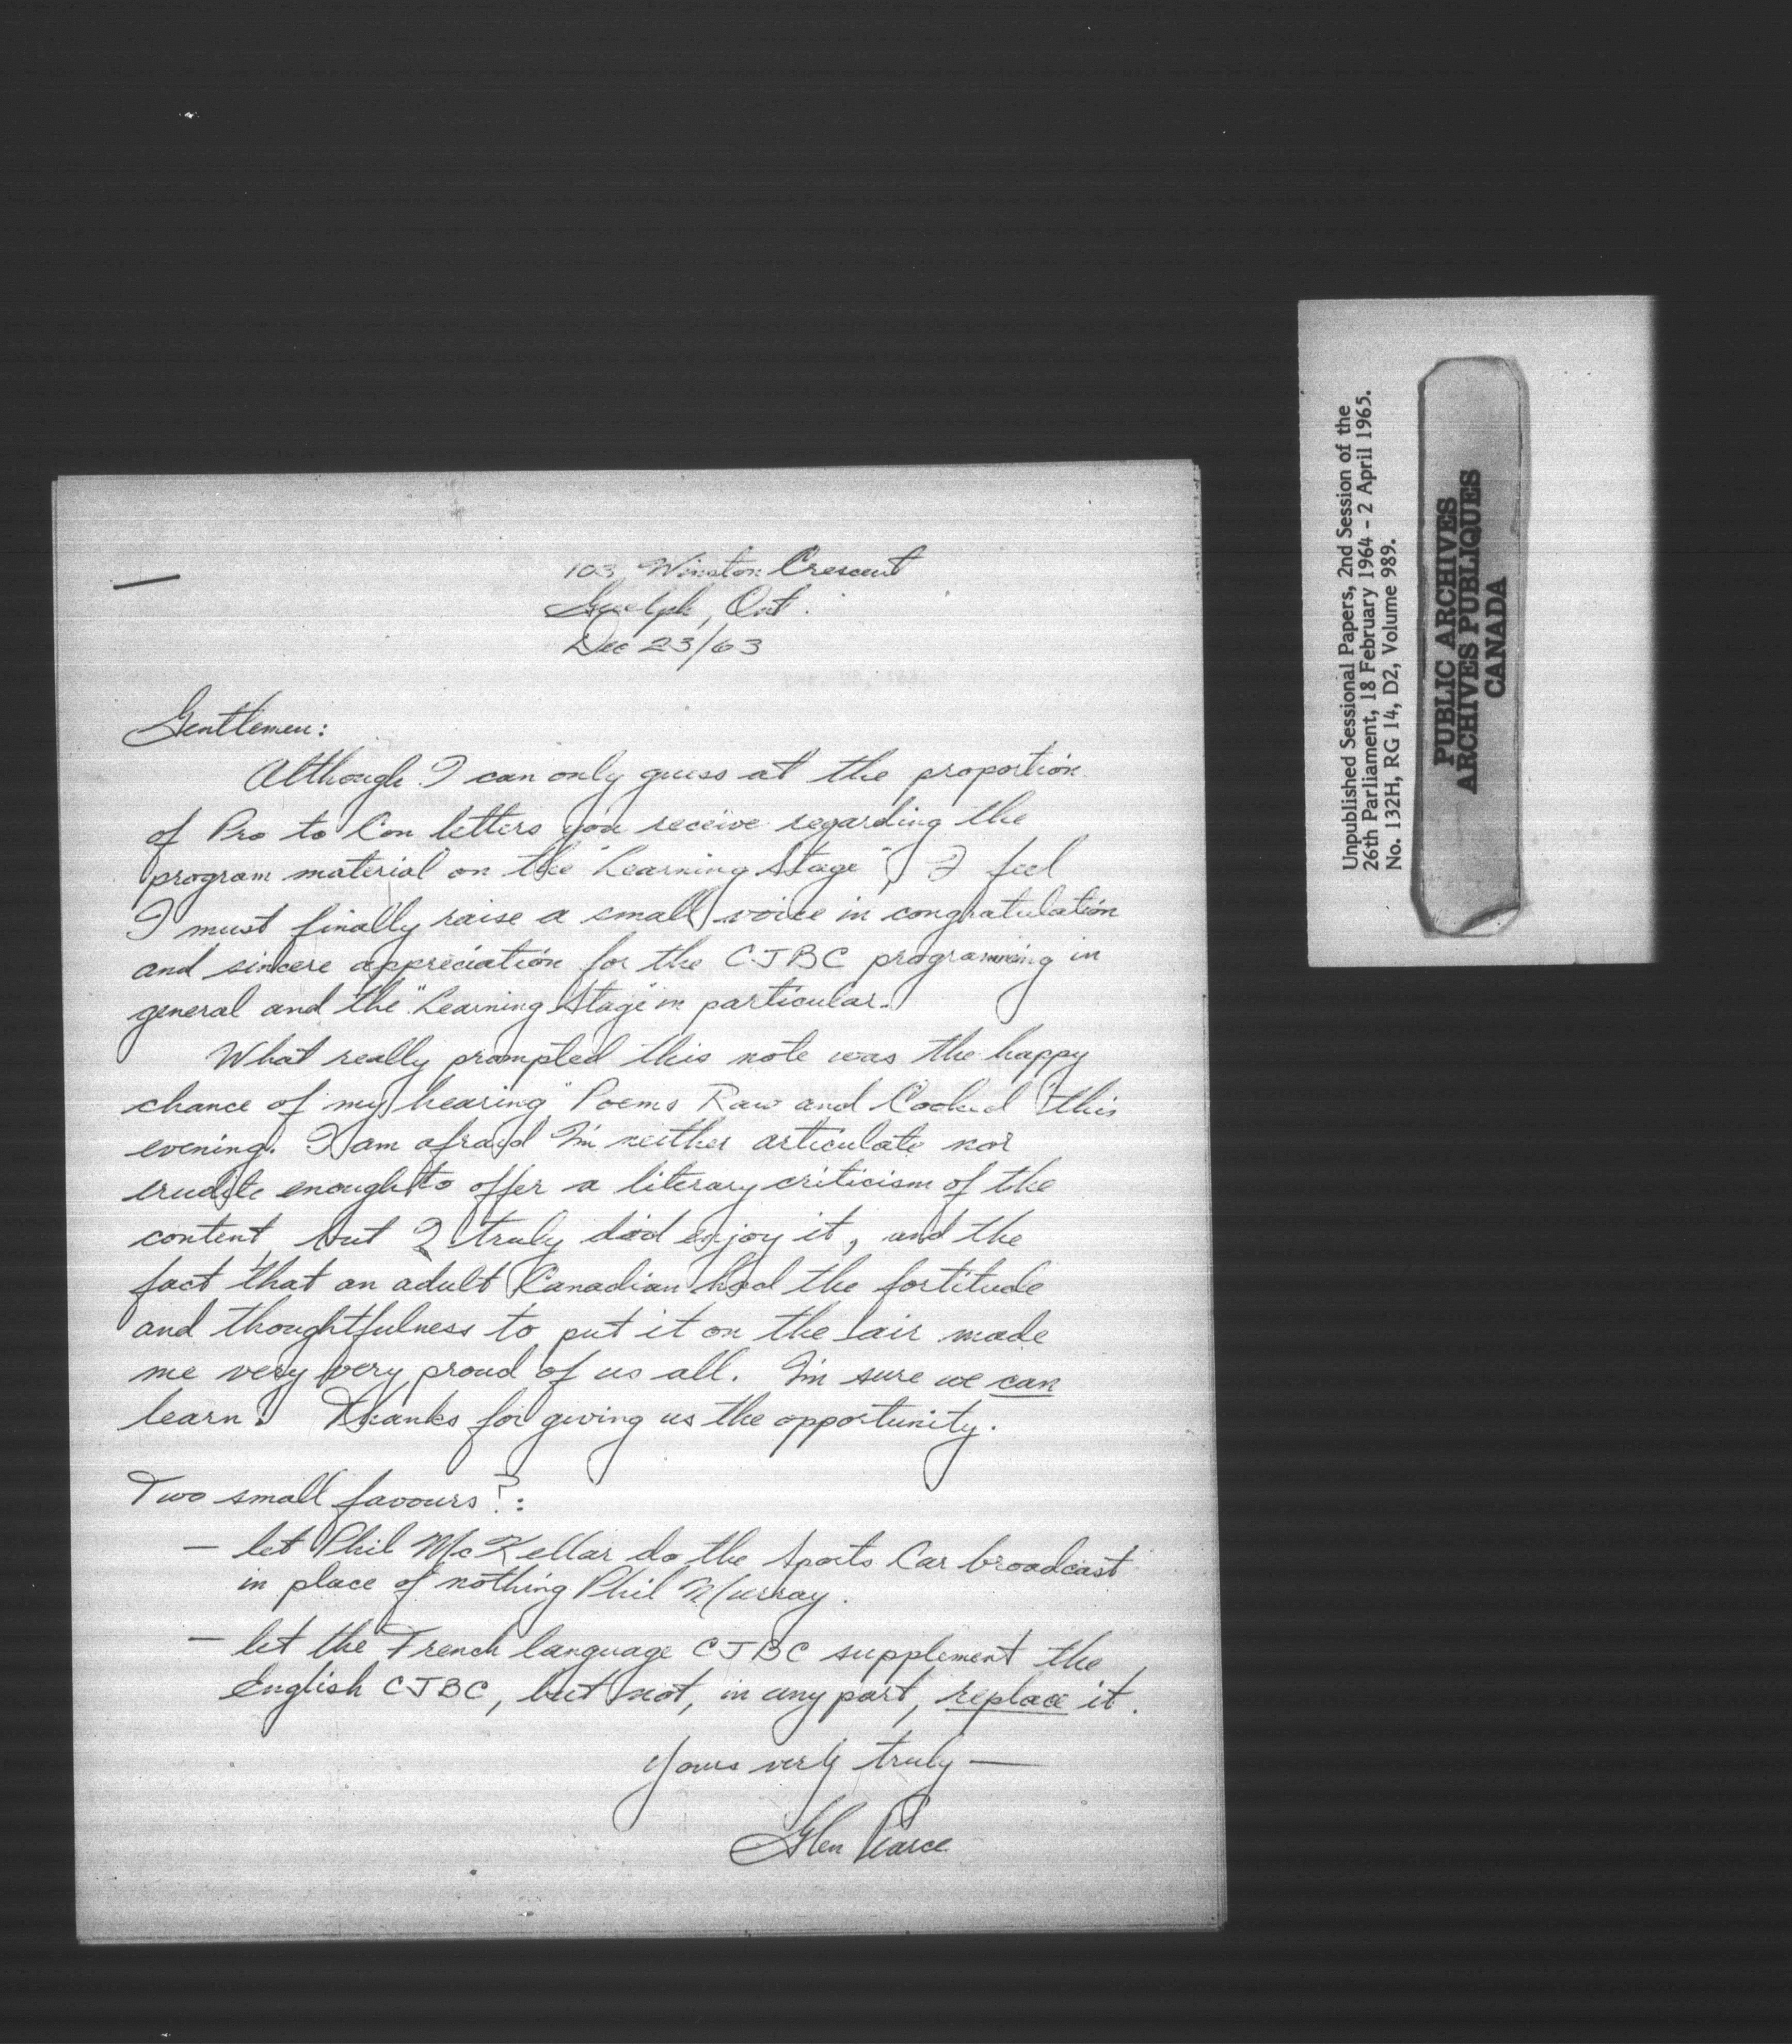 103 Winston Crescent
Guelph, Ont.
Dec 23/63
Gentlemen:
Although I can only guess at the proportion
of Pro to Con letters you receive regarding the
program material on the "Learning Stage", I feel
I must finally raise a small voice in congratulation
and sincere appreciation for the CJBC programming in
general and the "Learning Stage" in particular.
What really prompted this note was the happy
chance of my hearing "Poems Raw and Cooked" this
evening. I am afraid I'm neither articulate nor
erudite enough to offer a literary criticism of the
content, but I truly did enjoy it, and the
fact that an adult Canadian had the fortitude
and thoughtfulness to put it on the air made
me very very proud of us all. I'm sure we can
learn. Thanks for giving us the opportunity.
Two small favours?:
— let Phil McKellar do the Sports Car broadcast
in place of nothing Phil Murray.
— let the French language CJBC supplement the
English CJBC, but not, in any part, replace it.
Yours very truly —
Glen Pearce
Unpublished Sessional Papers, 2nd Session of the
26th Parliament, 18 February 1964 - 2 April 1965.
No. 132H, RG 14, D2, Volume 989.
PUBLIC ARCHIVES
ARCHIVES PUBLIQUES
CANADA